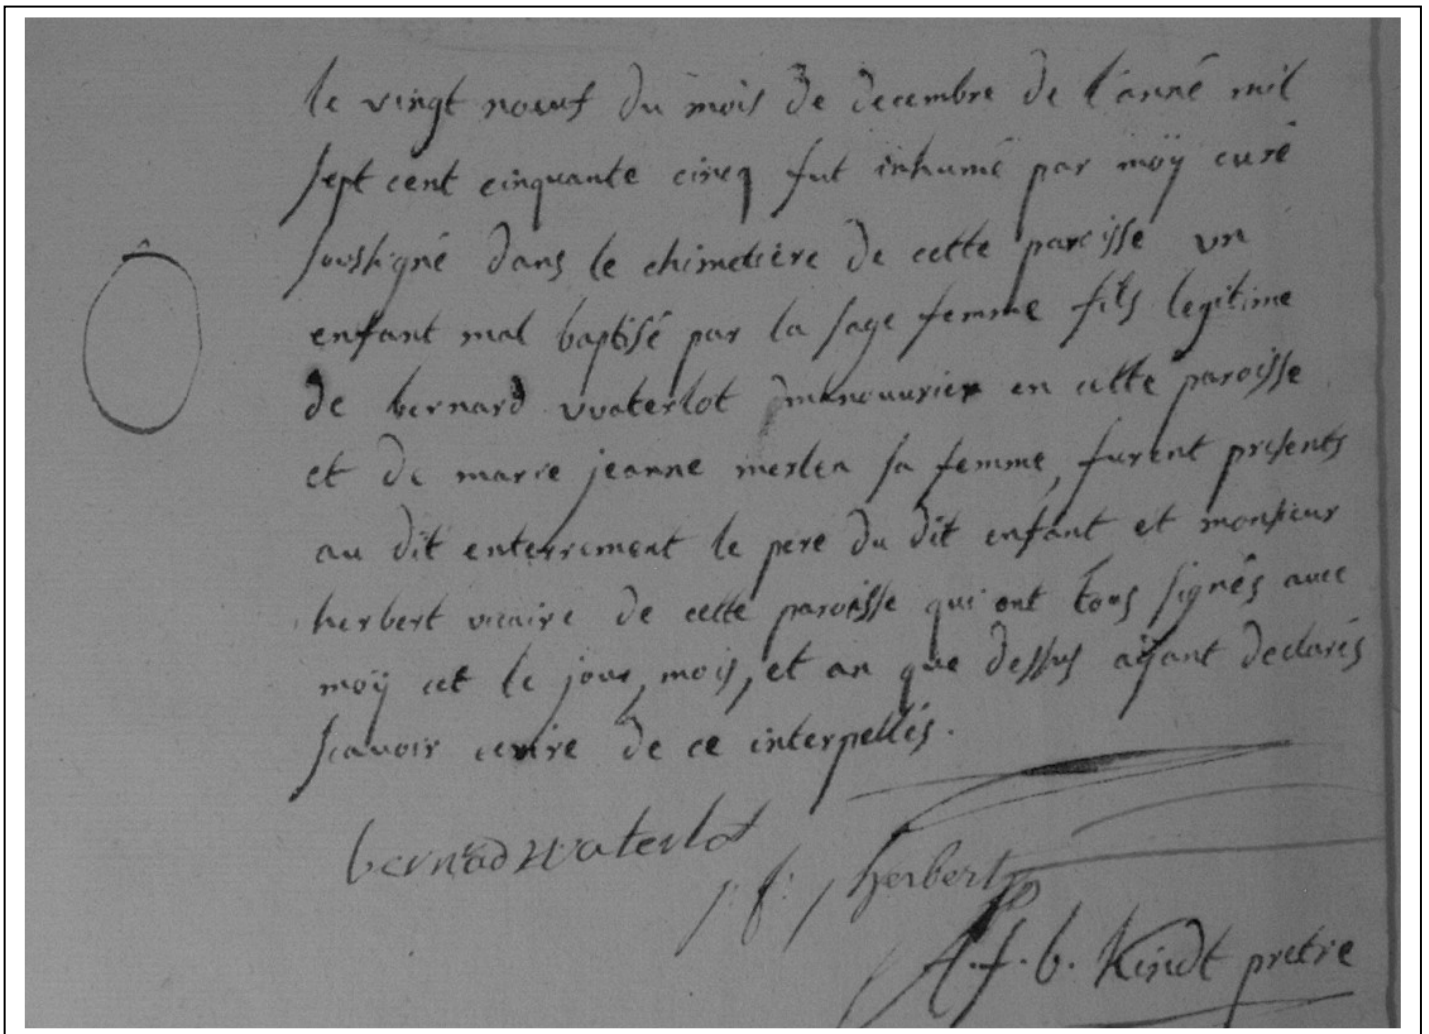 le vingt noeuf du mois de decembre de l'anné mil
sept cent cinquante cincq fut inhumé par moÿ curé
soussigné dans le chimetière de cette paroisse un
enfant mal baptisé par la sage femme fils legitime
de bernard vvaterlot manouurier en cette paroisse
et de marie jeanne merlen sa femme, furent presents
au dit enterrement le pere du dit enfant et monsieur
herbert vicaire de cette paroisse qui ont tous signés avec
moÿ cet le jour, mois, et an que dessus aÿant declarés
scavoir ecrire de ce interpellés.
bernad waterlot
j: f: j herbert
A. f. b. Kindt pretre